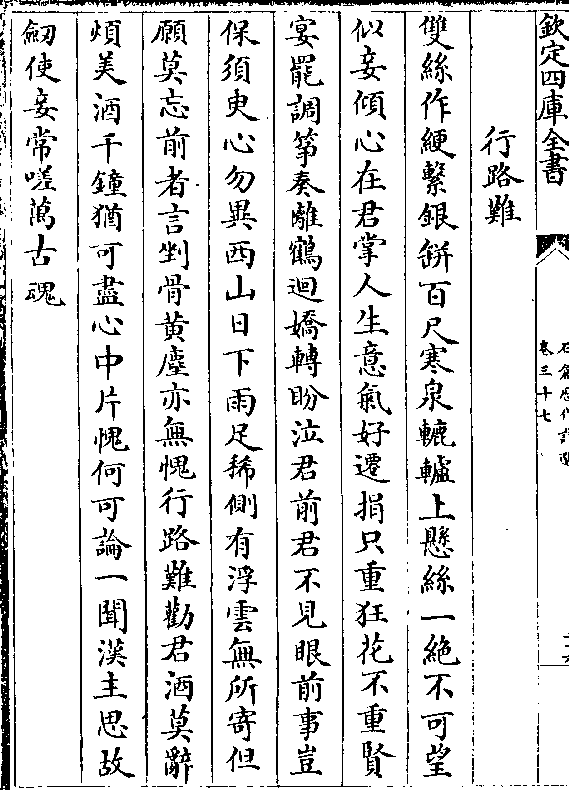 欽定四庫全書
卷三十七
行路難
雙絲作綆繫銀缾百尺寒泉轆轤上懸絲一絶不可望
似妾傾心在君掌人生意氣好遷捐只重狂花不重賢
宴罷調箏奏離鶴迴嬌轉盼泣君前君不見眼前事豈
保須臾心勿異西山日下雨足稀側有浮雲無所寄但
願莫忘前者言剉骨黄塵亦無愧行路難勸君酒莫辭
煩美酒千鐘猶可盡心中片愧何可論一聞漢主思故
劒使妾常嗟萬古魂